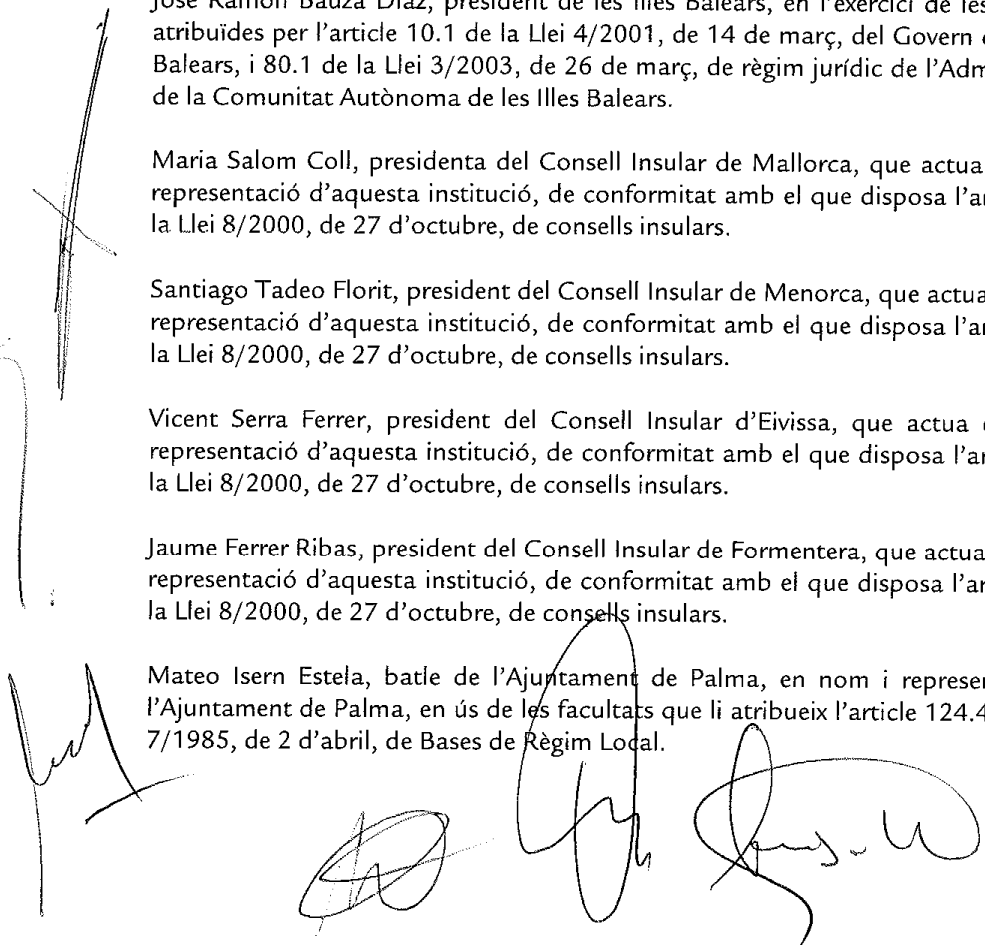 José Ramón Bauzá Díaz, president de les Illes Balears, en l'exercici de les
atribuïdes per l'article 10.1 de la Llei 4/2001, de 14 de març, del Govern
Balears, i 80.1 de la Llei 3/2003, de 26 de març, de règim jurídic de
de la Comunitat Autònoma de les Illes Balears.
Maria Salom Coll, presidenta del Consell Insular de Mallorca, que actua
representació d'aquesta institució, de conformitat amb el que disposa
la Llei 8/2000, de 27 d'octubre, de consells insulars.
Santiago Tadeo Florit, president del Consell Insular de Menorca, que actua
representació d'aquesta institució, de conformitat amb el que disposa
la Llei 8/2000, de 27 d'octubre, de consells insulars.
Vicent Serra Ferrer, president del Consell Insular d'Eivissa, que actua
representació d'aquesta institució, de conformitat amb el que disposa
la Llei 8/2000, de 27 d'octubre, de consells insulars.
Jaume Ferrer Ribas, president del Consell Insular de Formentera, que actua
representació d'aquesta institució, de conformitat amb el que disposa
la Llei 8/2000, de 27 d'octubre, de consells insulars.
Mateo Isern Estela, batle de l'Ajuntament de Palma, en nom i
l'Ajuntament de Palma, en ús de les facultats que li atribueix l'article 124.4
7/1985, de 2 d'abril, de Bases de Règim Local.